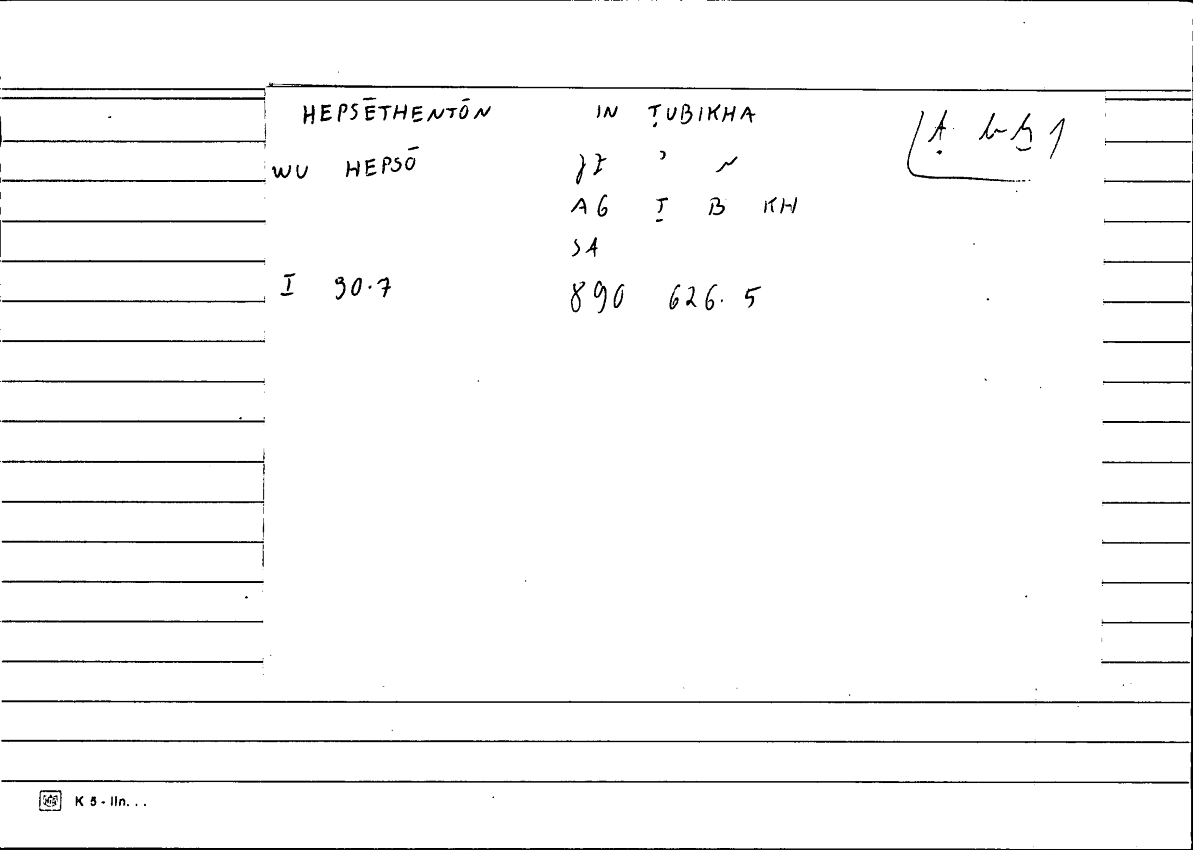 HEPSĒTHENTŌN IN ṬUBIKHA
WU HEPSŌ
AG Ṭ B KH
SA
I 30.7 890 626.5
K 5 - lln...